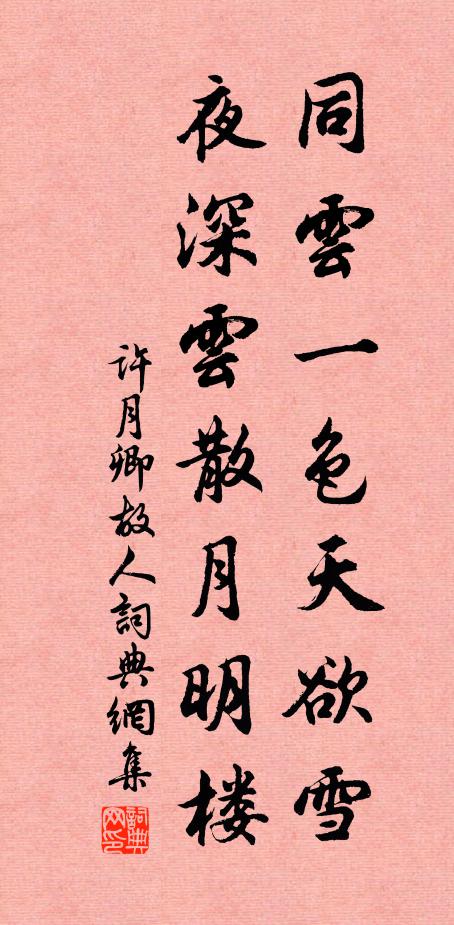 同雲一色天欲雪
夜深雲散月明楼
許月卿故人詞典網集
詞典网印